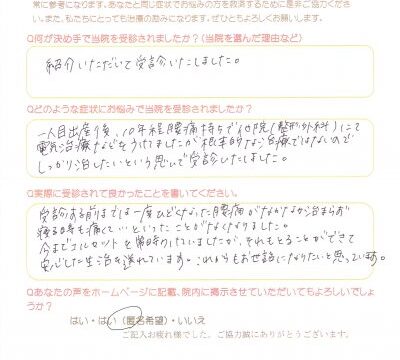 常に参考になります。あなたと同じ症状でお悩みの方を救済するために是非ご協力くださ
い。また、私たちにとっても治療の励みになります。ぜひともよろしくお願いします。
Q何が決め手で当院を受診されましたか?(当院を選んだ理由など)
紹介いただいて受診いたしました。
Qどのような症状にお悩みで当院を受診されましたか?
一人目出産後、10年程腰痛持ちで他院(整形外科)にて
電気治療などをうけてましたが根本的な治療ではないので
しっかり治したいという思いで受診いたしました。
Q実際に受診されて良かったことを書いてください。
受診する前までは一度ひどくなった腰痛がなかなか治まらず
寝る時も痛くて…といったことがなくなりました。
今までコルセットを常時つけていましたが、それもとることができて
安心した生活を送れています。これからもお世話になりたいと思っています。
Qあなたの声をホームページに記載、院内に掲示させていただいてもよろしいでしょ
うか?
はい・はい(匿名希望)・いいえ
ご記入お疲れ様でした。ご協力誠にありがとうございます。